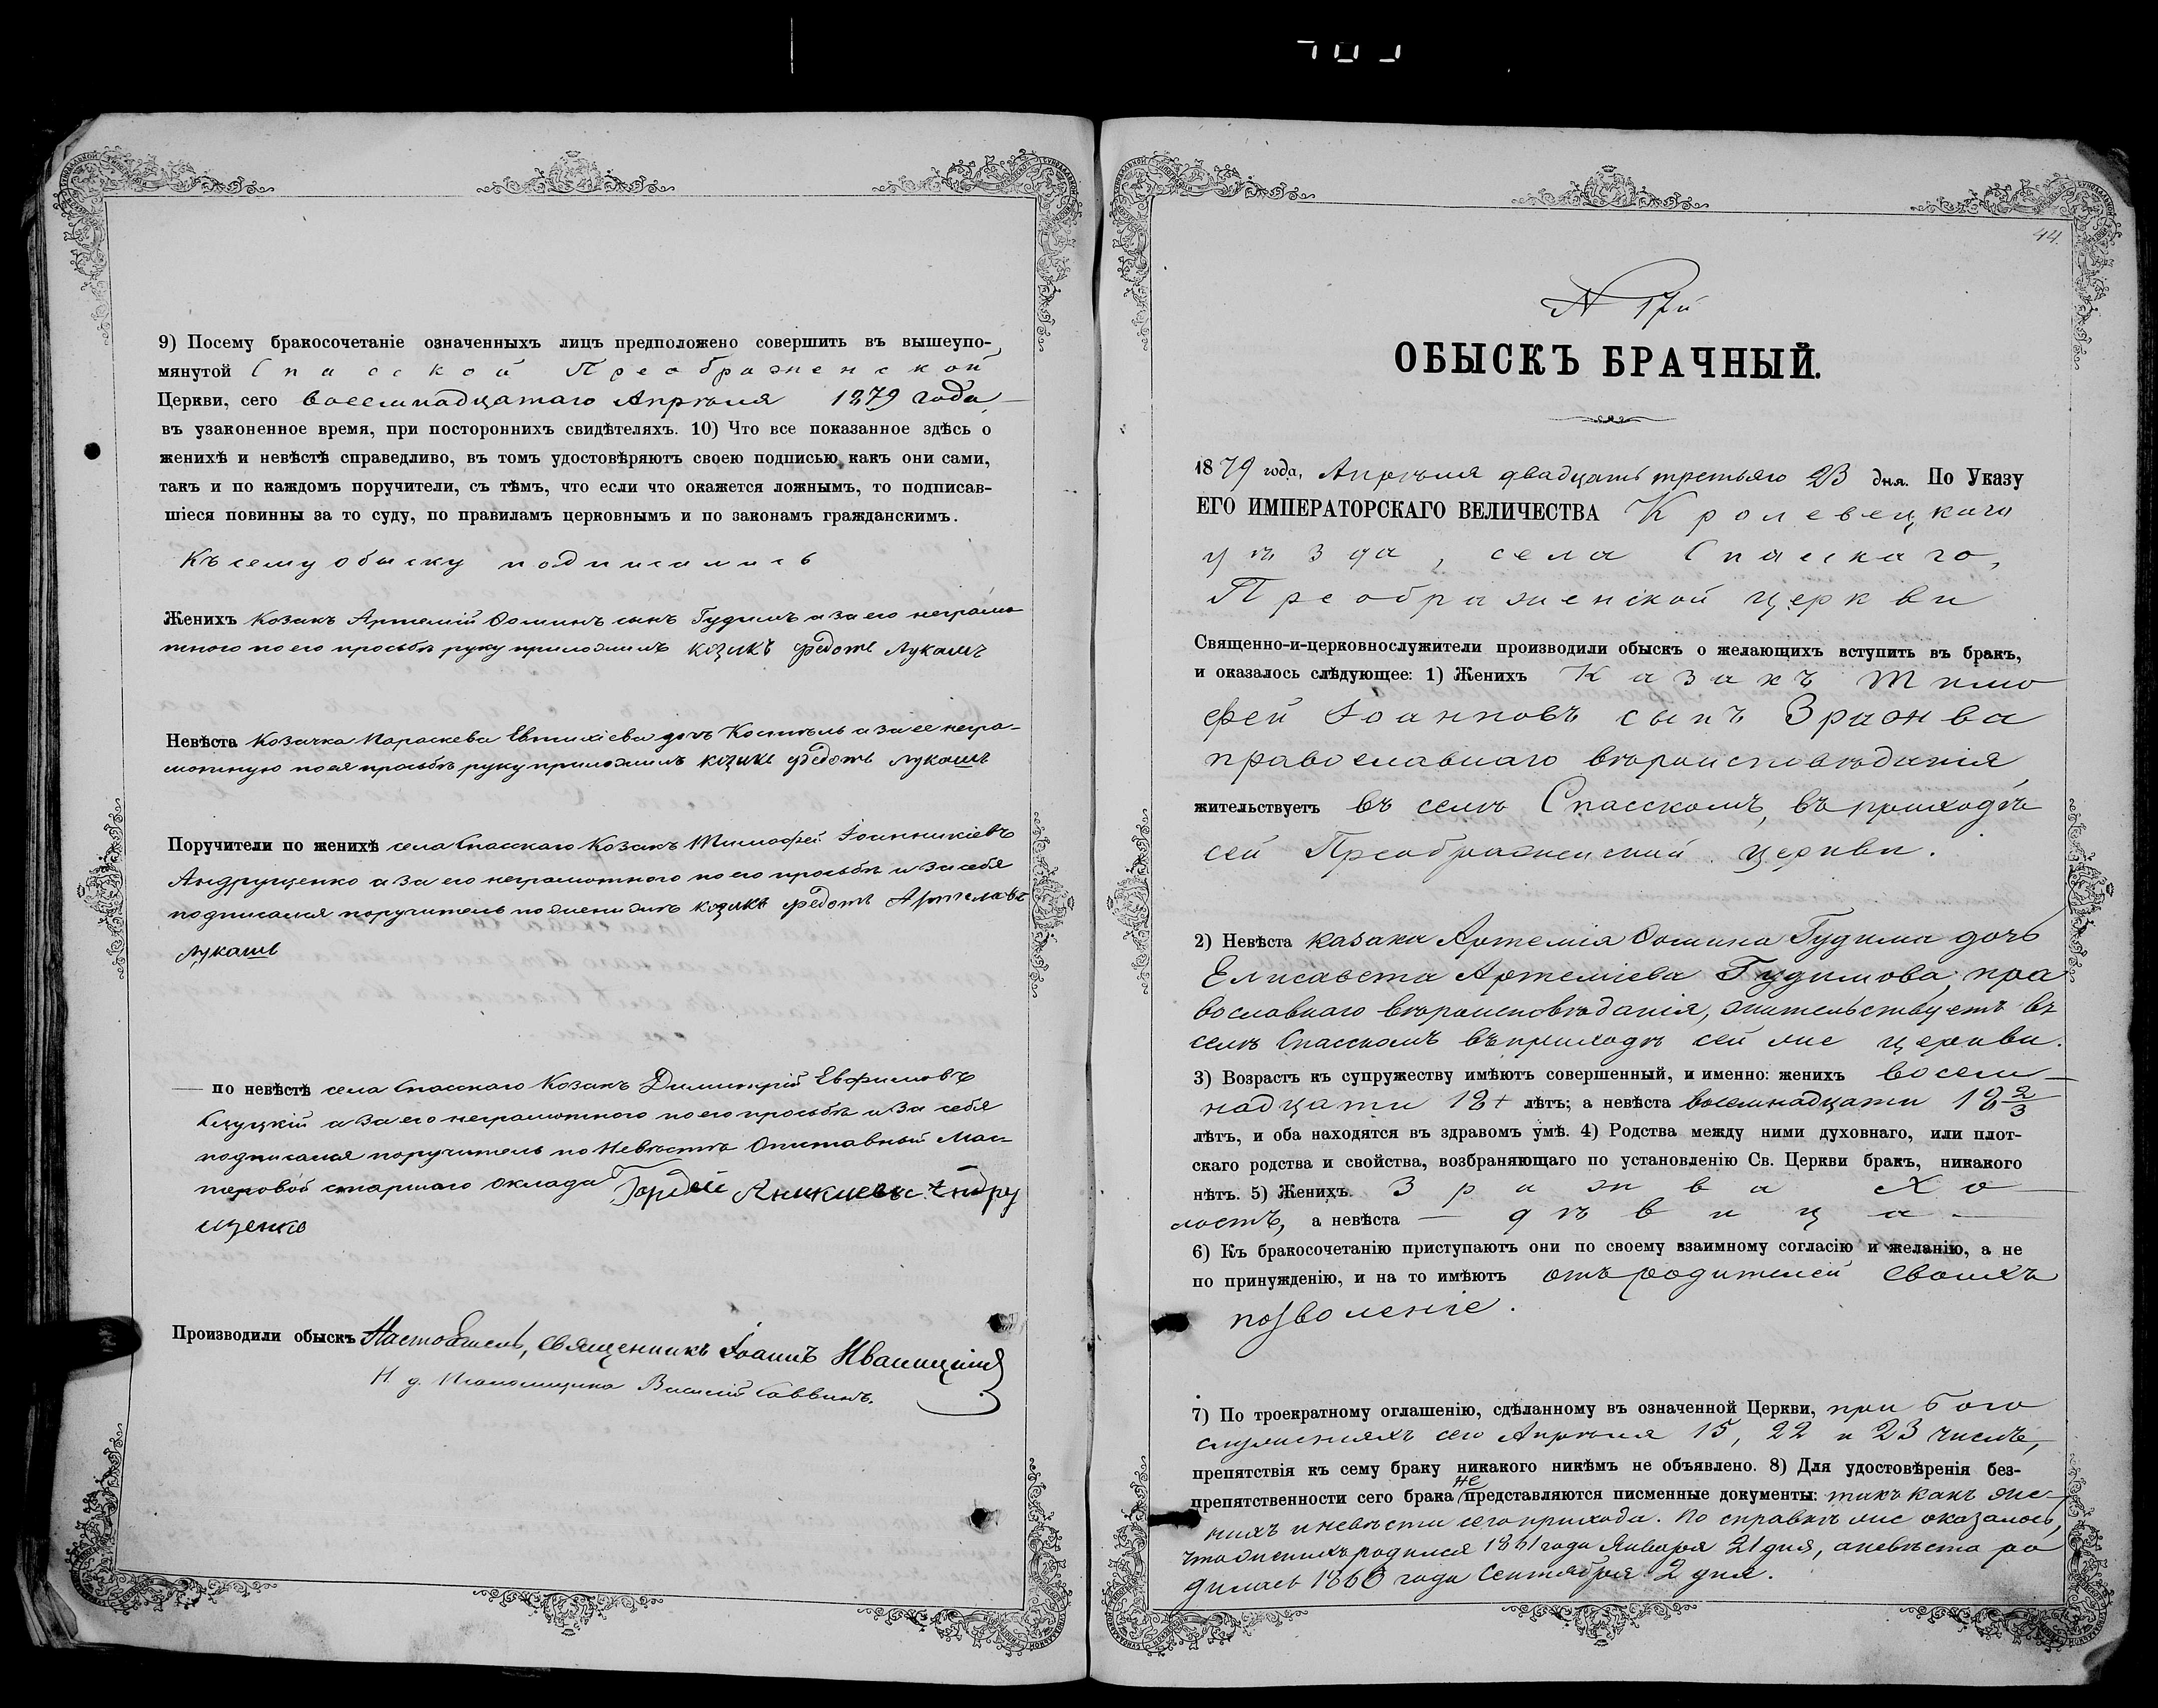 9) Посему бракосочетаніе означенныхъ лицъ предположено совершить въ вышеупо-
мянутой Спасской Преображенской
Церкви, сего восемнадцатаго Апрѣля 1879 года,
въ узаконенное время, при постороннихъ свидѣтеляхъ. 10) Что все показанное здѣсь о
женихѣ и невѣстѣ справедливо, въ томъ удостовѣряютъ своею подписью какъ они сами,
такъ и по каждомъ поручители, съ тѣмъ, что если что окажется ложнымъ, то подписав-
шіеся повинны за то суду, по правиламъ церковнымъ и по законамъ гражданскимъ.
Къ сему обыску подписались
Женихъ Козакъ Артемій Ѳоминъ сынъ Гудимъ а за его неграмо
тного по его просьбѣ руку приложилъ козакъ Федотъ Лукашъ
Невѣста Козачка Параскева Евтихіева дочь а за ее негра-
мотную по ея просьбѣ руку приложилъ козакъ Федотъ Лукашъ
Поручители по женихѣ села Спасскаго Козакъ Тимофей Іоанникіевъ
Андрущенко а за его неграмотного по его просьбѣ и за себя
подписался поручитель по женихѣ козакъ Федотъ
Лукашъ
— по невѣстѣ села Спасскаго Козакъ Димитрій Евфимовъ
а за его неграмотного по его просьбѣ и за себя
подписался поручитель по Невѣстѣ Отставный Мас-
теровой старшаго оклада Гордей Аникиевъ Андру
щенко
Производили обыскъ Настоятель, священникъ Іоаннъ Иваницкій
И. д. Псаломщика Василій Саввинъ.
44.
N 17й
ОБЫСКЪ БРАЧНЫЙ.
1879 года, Апрѣля двадцать третьяго 23 дня. По Указу
ЕГО ИМПЕРАТОРСКАГО ВЕЛИЧЕСТВА Кролевецкаго
уѣзда, села Спасскаго,
Преображенской церкви
Священно-и-церковнослужители производили обыскъ о желающихъ вступить въ бракъ,
и оказалось слѣдующее: 1) Женихъ Казакъ Тимо
фей Іоанновъ сынъ Зражва
православнаго вѣроисповѣданія,
жительствуетъ въ селѣ Спасскомъ, въ приходѣ
сей Преображенской церкви.
2) Невѣста казака Артемія Ѳомина Гудима дочь
Елисавета Артеміева Гудимова, пра
вославнаго вѣроисповѣданія, жительствуетъ въ
селѣ Спасскомъ въ приходѣ сей же церкви.
3) Возрастъ къ супружеству имѣютъ совершенный, и именно: женихъ восем—
надцати 18+ лѣтъ; а невѣста восемнадцати 18 2/3
лѣтъ, и оба находятся въ здравомъ умѣ. 4) Родства между ними духовнаго, или плот-
скаго родства и свойства, возбраняющаго по установленію Св. Церкви бракъ, никакого
нѣтъ. 5) Женихъ Зражва хо—
лостъ, а невѣста — дѣвица —
6) Къ бракосочетанію приступаютъ они по своему взаимному согласію и желанію, а не
по принужденію, и на то имѣютъ отъ родителей своихъ
позволеніе.
7) По троекратному оглашенію, сдѣланному въ означенной Церкви, при бого
служеніяхъ сего Апрѣля 15, 22 и 23 числъ,
препятствія къ сему браку никакого никѣмъ не объявлено. 8) Для удостовѣренія без-
препятственности сего брака не представляются писменные документы: такъ какъ же-
нихъ и невѣста сего прихода. По справкѣ же оказалось,
что женихъ родился 1861 года Января 21 дня, а невѣста ро
дилась 1860 года Сентября 2 дня.